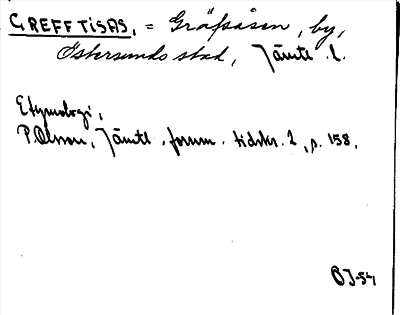 GREFFTISAS, = Gräfsåsen, by,
Östersunds stad, Jämtl. l.
Etymologi,
P. Olsson, Jämtl. fornm. tidskr. 2, s. 158.
BJ-54